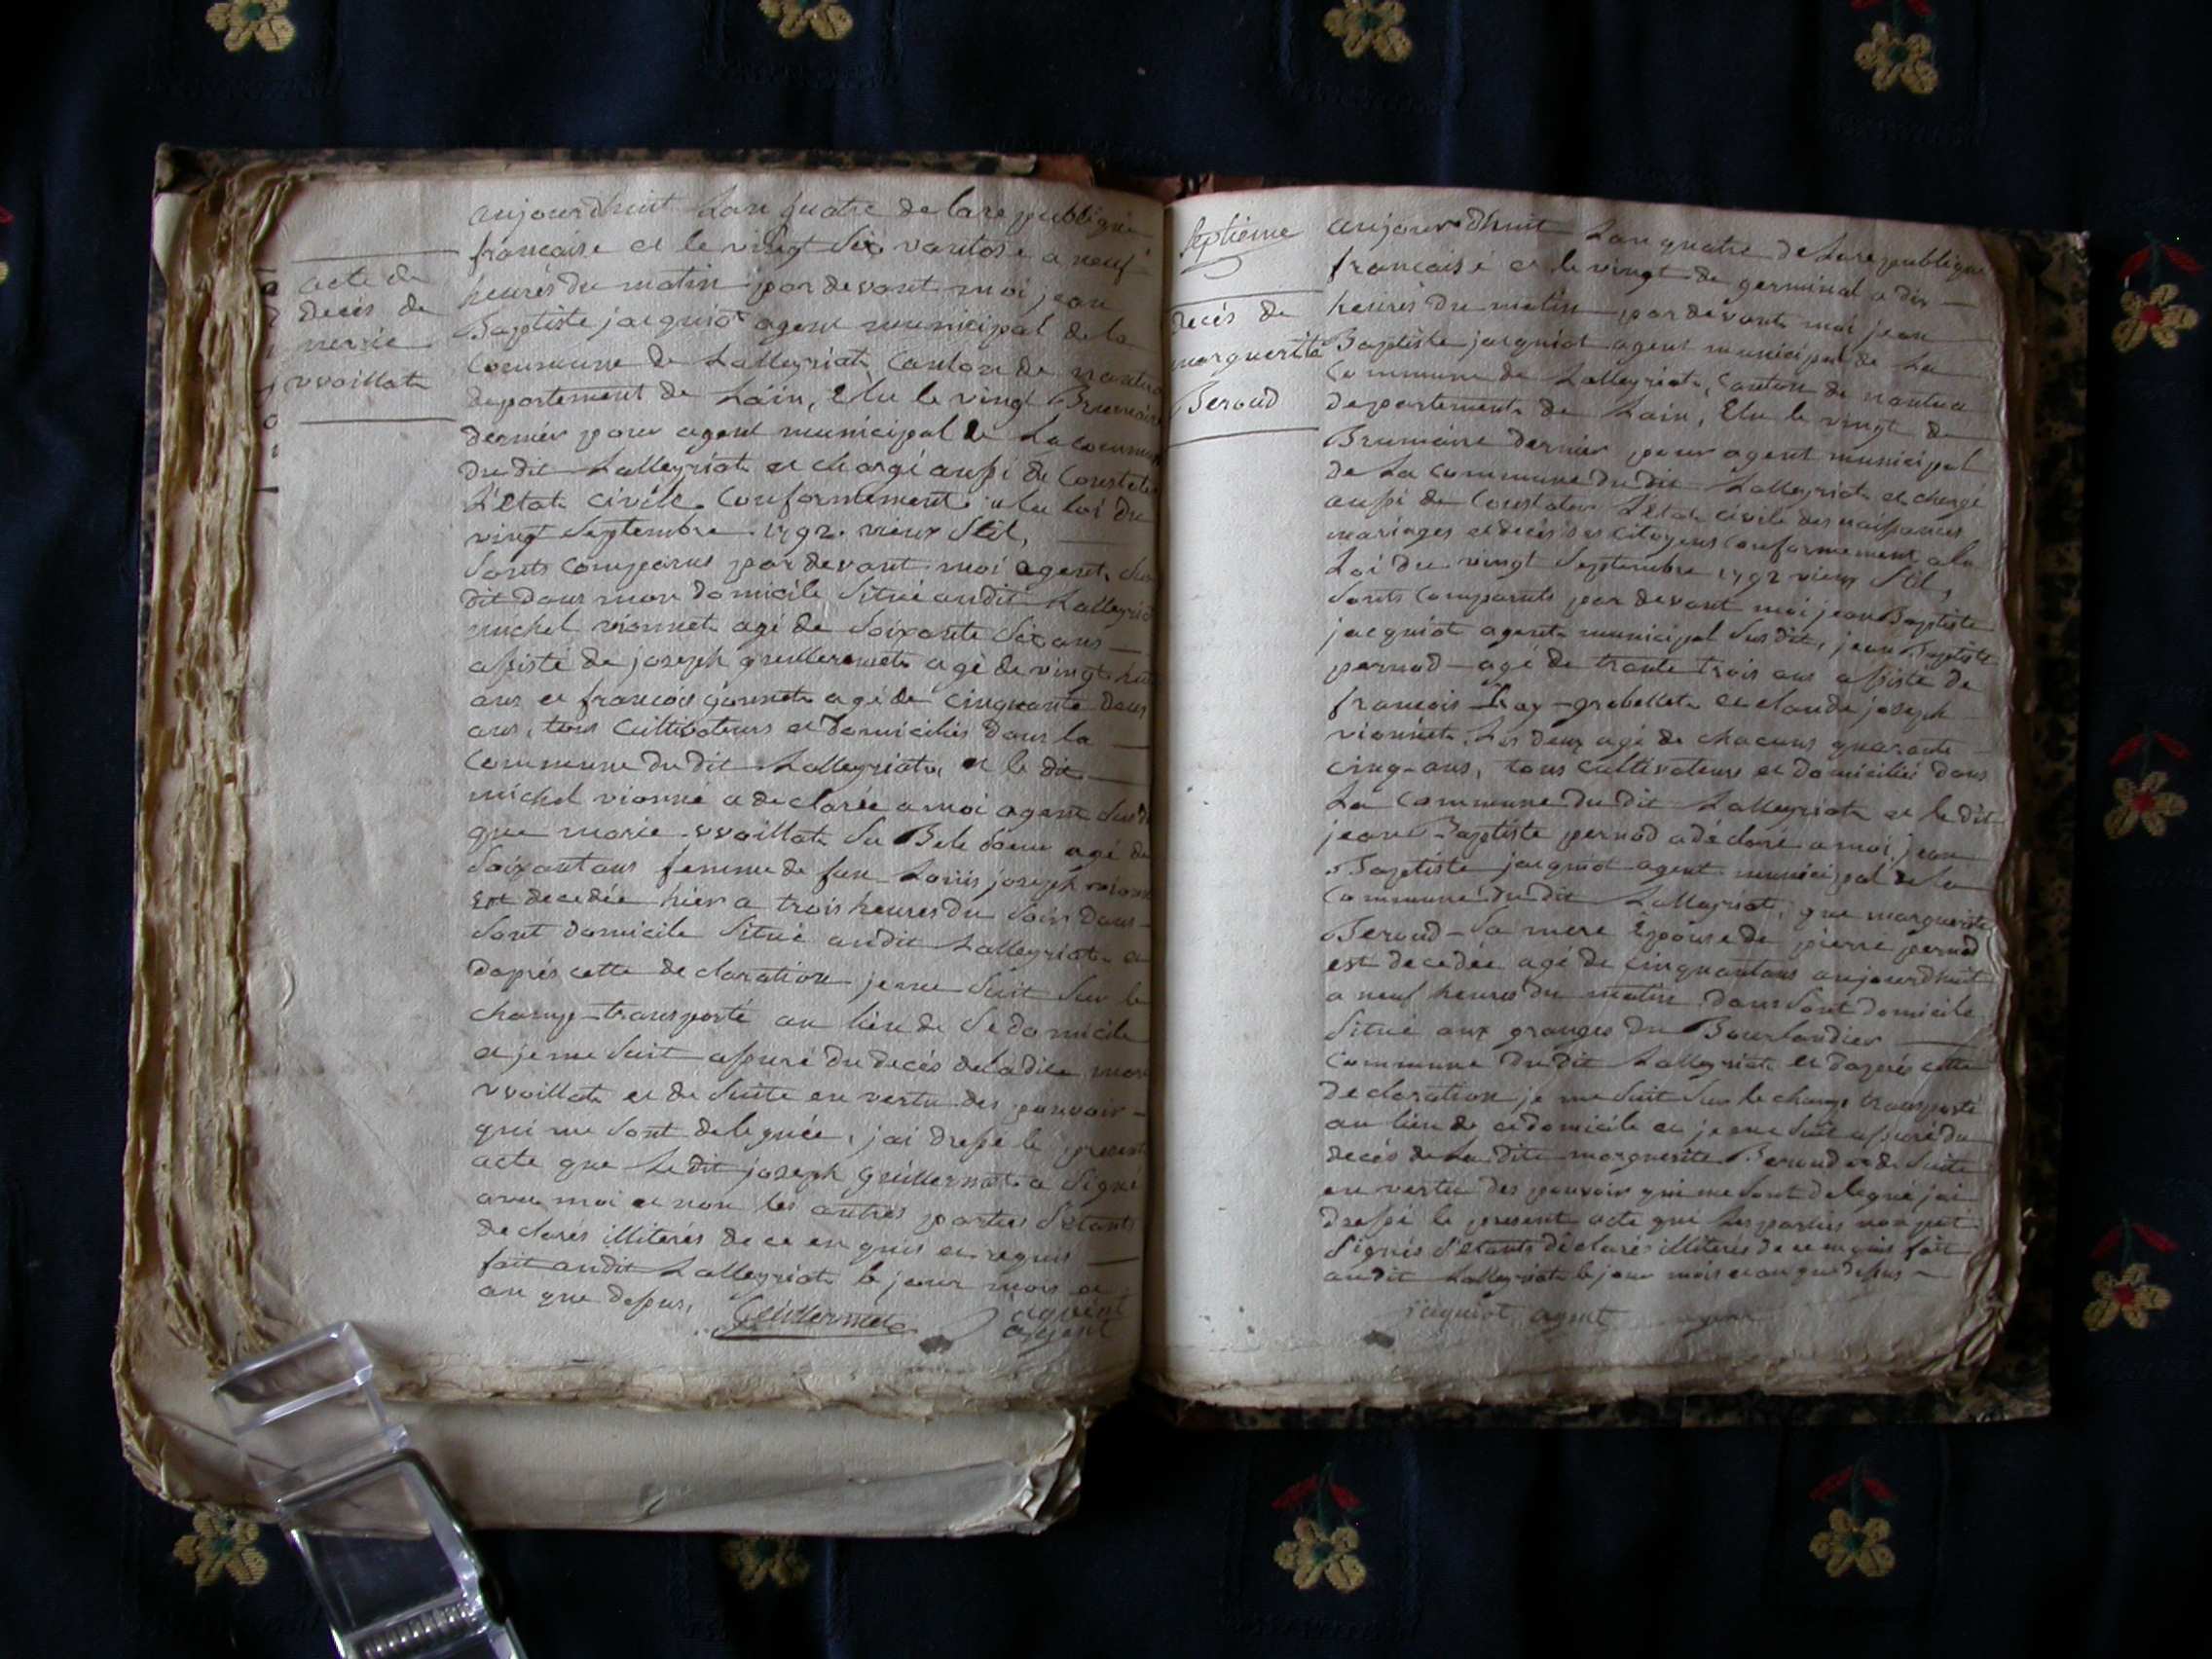 acte de
decès de
marie
vvaillat
aujourdhuit Lan quatre de la republique
francaise et le vingt six vantose a neuf
heurés du matin par devant moi jean
Baptiste jacquiot agent municipal de la
commune de Lalleyriat, canton de nantua
departement de Lain, Elu le vingt Brumaire
dernier pour agent municipal de La commune
du dit Lalleyriat et chargé aussi de Constater
L'état civile Conformement a la loi du
vingt Septembre 1792. vieux Stil,
Sonts comparus par devant moi agent sus
dit dans mon domicile Situé au dit Lalleyriat
michel vionnet agé de Soixante six ans
assisté de joseph guillermet agé de vingt huit
ans et francois agé de cinquante deux
ans, tous Cultivateurs et domiciliés dans la
commune du dit Lalleyriat, et le dit
michel vionné a declarée a moi agent susdit
que marie vvaillat Sa Bele Soeur agé de
Soixantans femme de feu Louis joseph vionné
Est decedée hier a trois heures du Soir dans
Sont domicile Situé au dit Lalleyriat et
daprés cette declaration je me Suit Sur le
champ transporté au lieu de Se domicile
et je me Suit assuré du decés de la dite marie
vvaillat et de Suite en vertu des pouvoir
qui me Sont deleguée, jai dressé le present
acte que Le dit joseph guillermet a Signé
avec moi et non les autres parties S'étants
declarés illiterés de ce enquis et requis
fait au dit Lalleyriat le jour mois et
an que dessus,
Guillermet
agent
Septième
decés de
marguerite
Beroud
aujourdhuit Lan quatre de La republique
francaisé et le vingt de germinal a dix
heurés du matin par devant moi jean
Baptiste jacquiot agent municipal de La
Commune de Lalleyriat, canton de nantua
departement de Lain, Elu le vingt de
Brumaire dernier pour agent municipal
de La commune du dit Lalleyriat et chargé
aussi de Constater L'état civile des naissances
mariages et decés des Citoyens Conformement a la
Loi du vingt Septembre 1792 vieux Stil,
Sonts comparuts par devant moi jean Baptiste
jacquiot agent municipal Susdit, jean Baptiste
pernod agé de trante trois ans assisté de
francois grobellet et claude joseph
vionnét Les deux agé de chacuns quarante
cinq ans, tous cultivateurs et domicilié dans
La Commune du dit Lalleyriat et le dit
jean Baptiste pernod a déclaré a moi jean
Baptiste jacquiot agent municipal de la
Commune du dit Lalleyriat, que marguerite
Beroud Sa mere Epouse de pierre pernod
est decedée agé de cinquantans aujourdhuit
a neuf heures du matin dans Sont domicile
Situé aux granges du Bourlandier
Commune du dit Lalleyriat et daprés cette
declaration je me Suit Sur le champ transporté
au lieu de ce domicile et je me Suit assuré du
decés de La dite marguerite Beroud et de Suite
en vertu des pouvoir qui me Sont delegué jai
dressé le present acte que Les parties non put
Signés S'étants déclarés illiterés de ce enquis fait
au dit Lalleyriat le jour mois et an que dessus
jaquiot agent